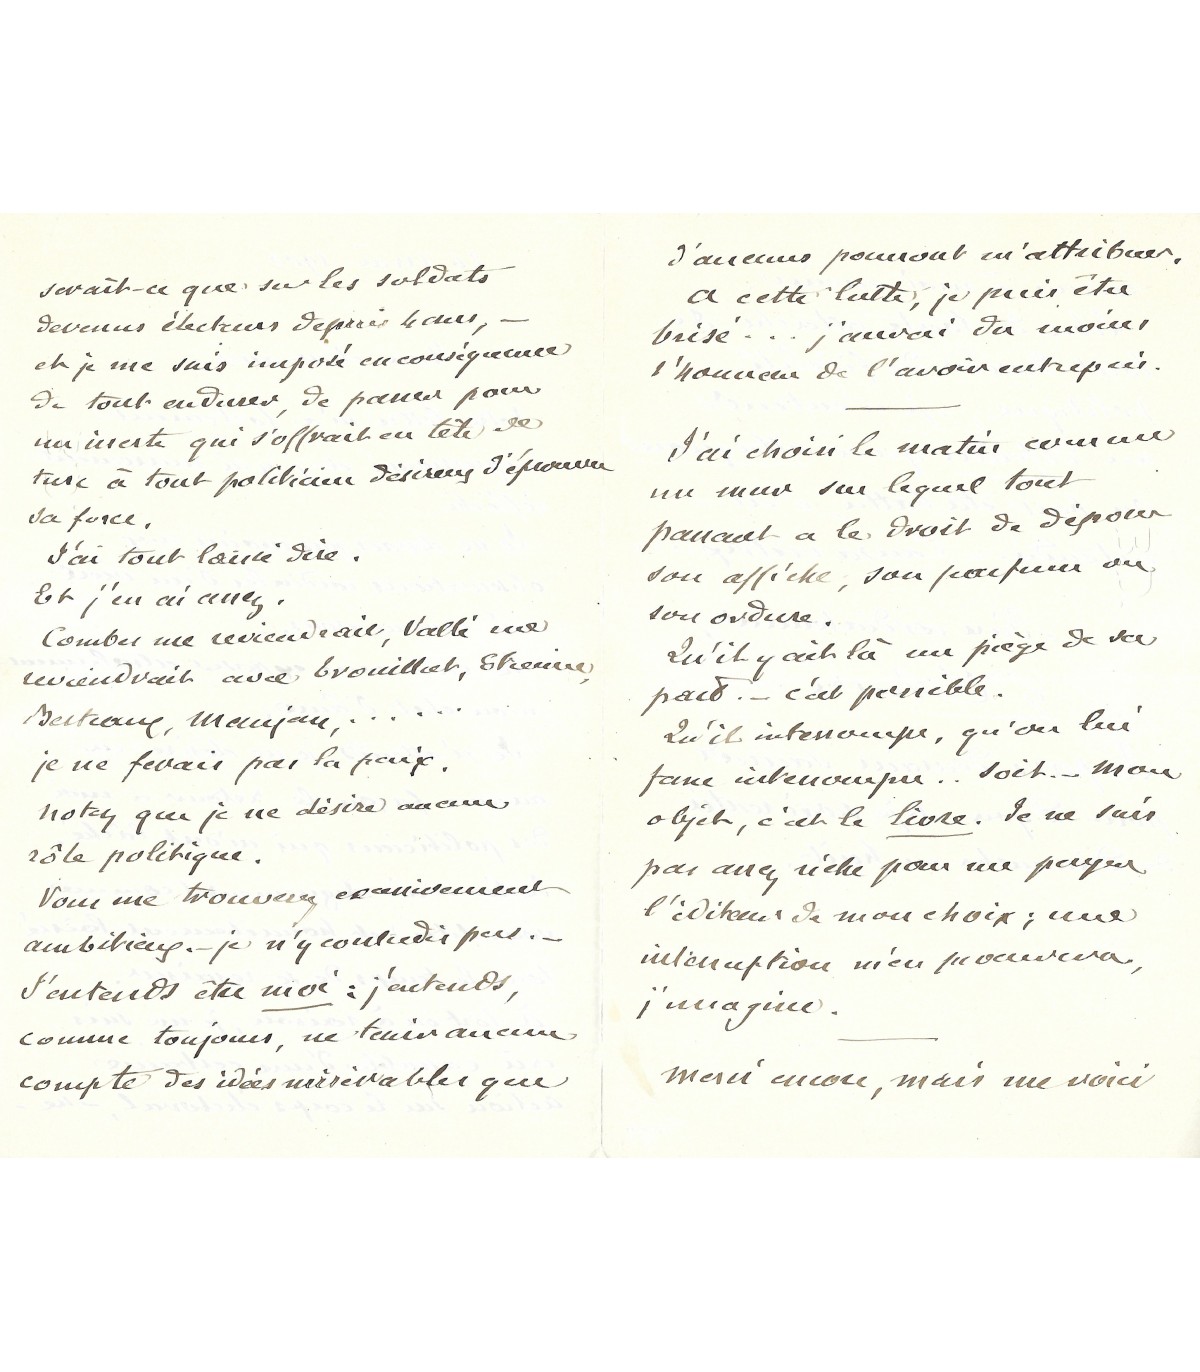 serait-ce que sur les soldats
devenus électeurs depuis 4 ans, —
et je me suis imposé en conséquence
de tout endurer, de passer pour
un inerte qui s'offrait en tête de
turc à tout politicien désireux d'éprouver
sa force.
J'ai tout laissé dire.
Et j'en ai assez.
Combes me reviendrait, Vallé me
reviendrait avec Trouillot, Etienne,
Berteaux, Maujan, . . . . . .
je ne ferais pas la paix.
Notez que je ne désire aucun
rôle politique.
Vous me trouverez excessivement
ambitieux. — je n'y contredis pas. —
J'entends être moi : j'entends,
comme toujours, ne tenir aucun
compte des idées misérables que
d'aucuns pourront m'attribuer.
A cette lutte, je puis être
brisé . . . j'aurai du moins
l'honneur de l'avoir entrepris.
J'ai choisi le matin comme
un mur sur lequel tout
passant a le droit de déposer
son affiche, son parfum ou
son ordure.
Qu'il y ait là un piège de sa
part. — c'est possible.
Qu'il interrompe, qu'on lui
fasse interrompre . . soit. — Mon
objet, c'est le livre. Je ne suis
pas assez riche pour me payer
l'éditeur de mon choix ; une
interruption m'en pourvoira,
j'imagine.
Merci encore, mais me voici